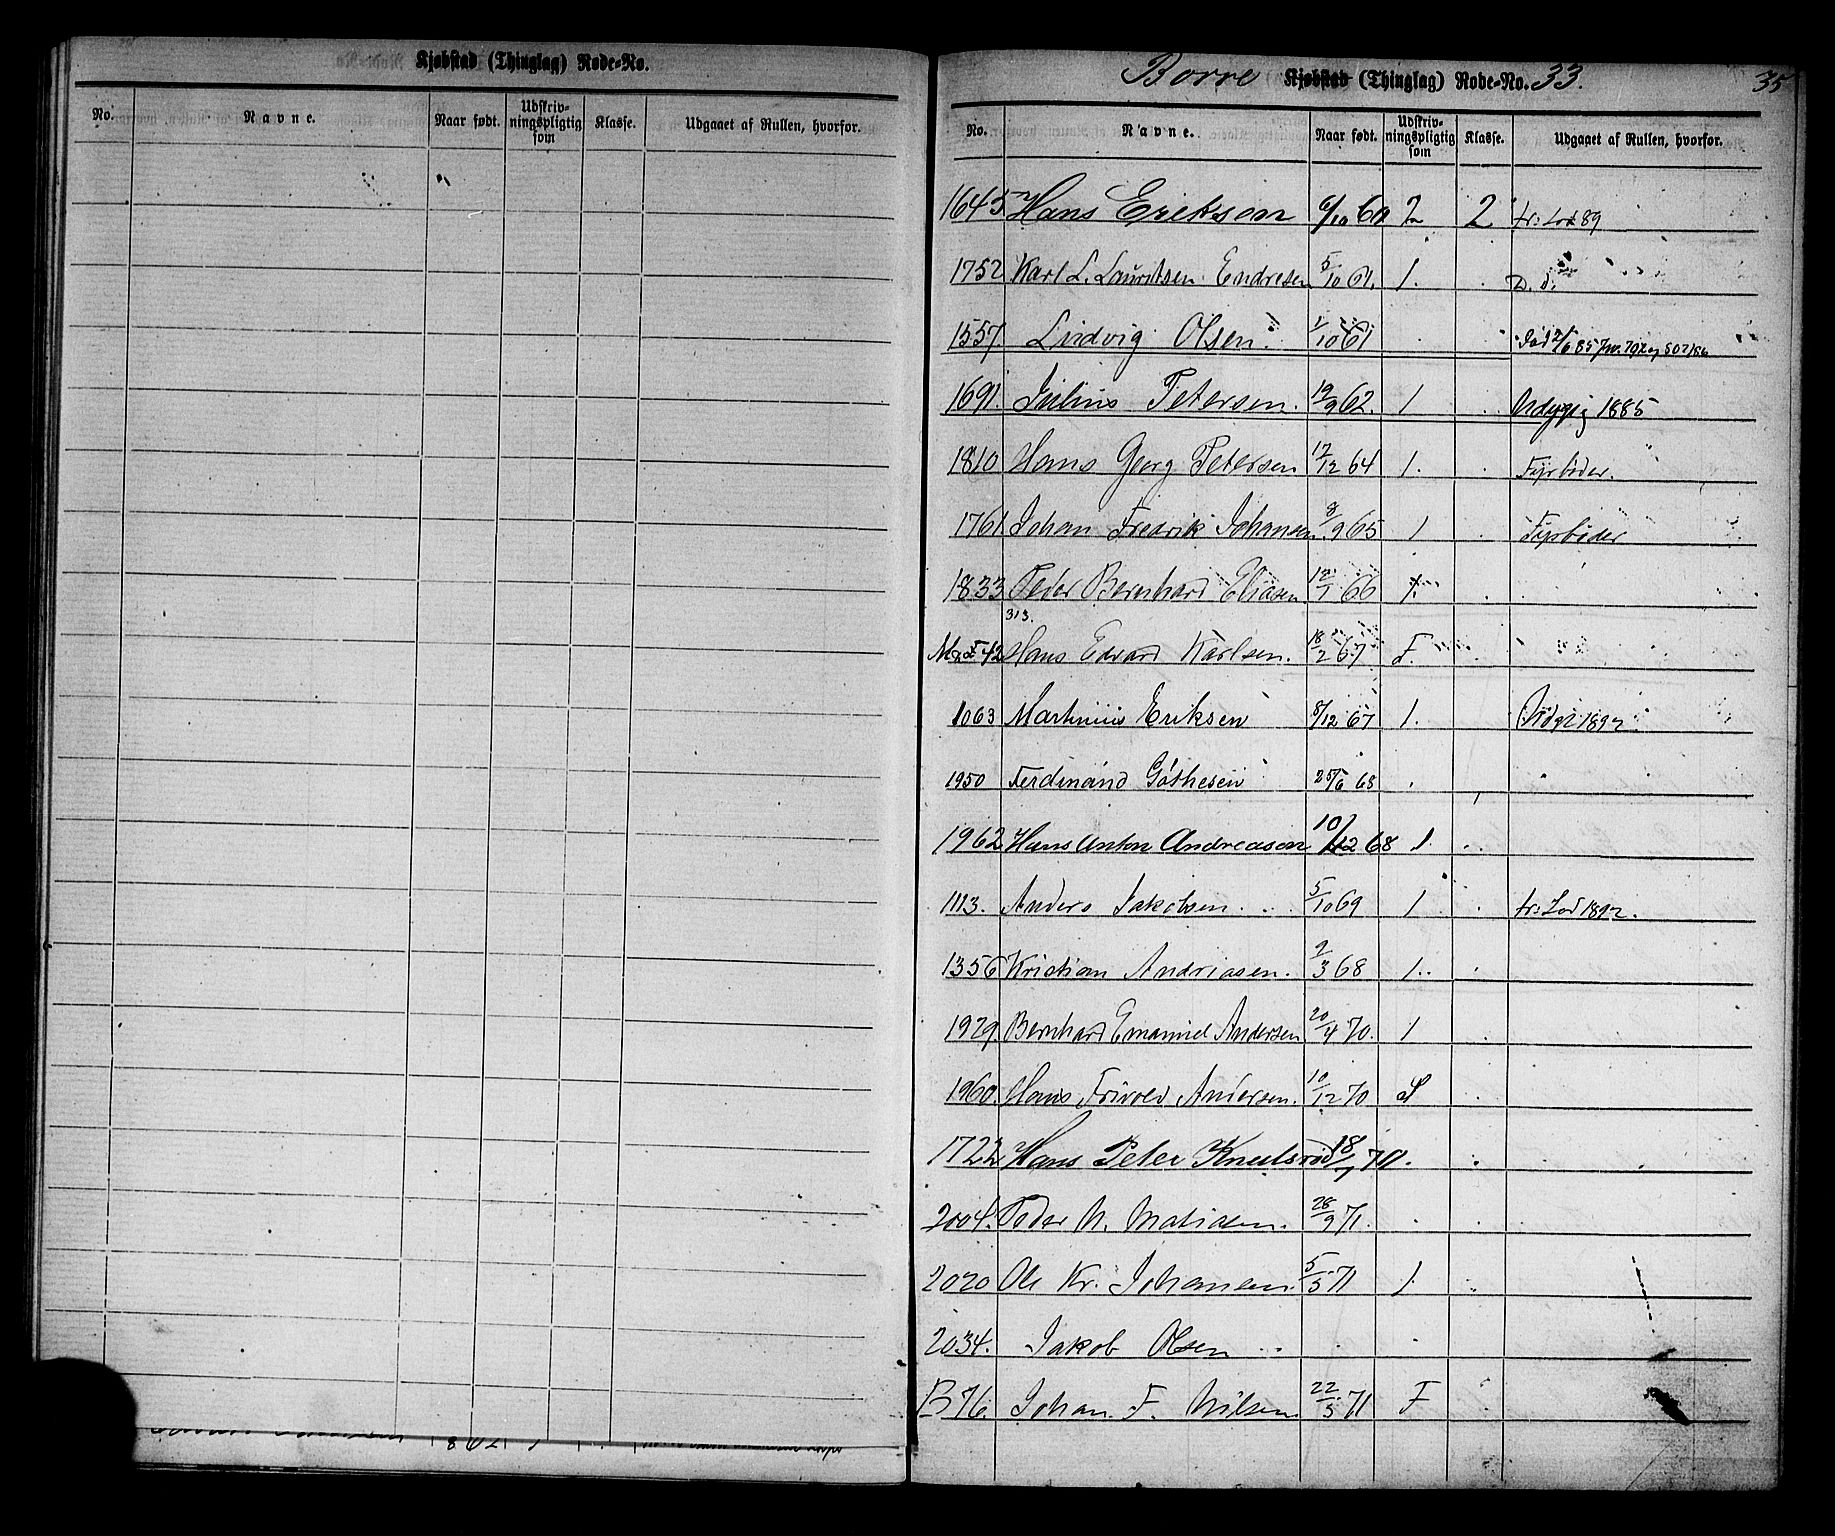 Kjøbstad (Thinglag) Rode-No.
No. Navne. Naar født. Udskriv-ningspligtig som Klasse. Udgaaet af Rullen, hvorfor.
Borre Kjøbstad (Thinglag) Rode-No. 33. 35
No. Navne. Naar født. Udskriv-ningspligtig som Klasse. Udgaaet af Rullen, hvorfor.
1645 Hans Erikson 6/10 60 2 2 fr: Lod 89
1752 Karl L. Lauritsen Endresen 5/10 61. 1. D. d.
1557. Ludvig Olsen. 1/10 61
1691. Julius Petersen. 19/9 62. 1 Udygtig 1885
1810 Hans Georg Petersen 17/12 64 1. Fyrbøder.
1761. Johan Fredrik Johansen 8/9 65 1 Fyrbøder
1833 Peder Bernhard Eliasen 12/1 66 1.
313.
42 Hans Edvard Karlsen. 18/2 67 F.
1063 Martinius Eriksen 8/12 67 1. 1892.
1950 Ferdinand Gøthesen 25/6 68
1962 Hans Anton Andreasen 10/12 68 1.
1113. Anders Jakobsen. 5/10 69 1 fr: Lod 1892.
1356 Kristian Andriasen. 9/3 68 1.
1929. Bernhard Emanuel Andersen 20/4 70. 1
1960. Hans Frivold Andersen. 10/12 70
1722 Hans Peter Knutsrød 18/1 70
2004. Peder M. Matisen. 28/9 71.
2020 Ole Kr. Johansen. 5/5 71 1.
2034. Jakob Olsen
B 76. Johan F. Nilsen 22/5 71 F